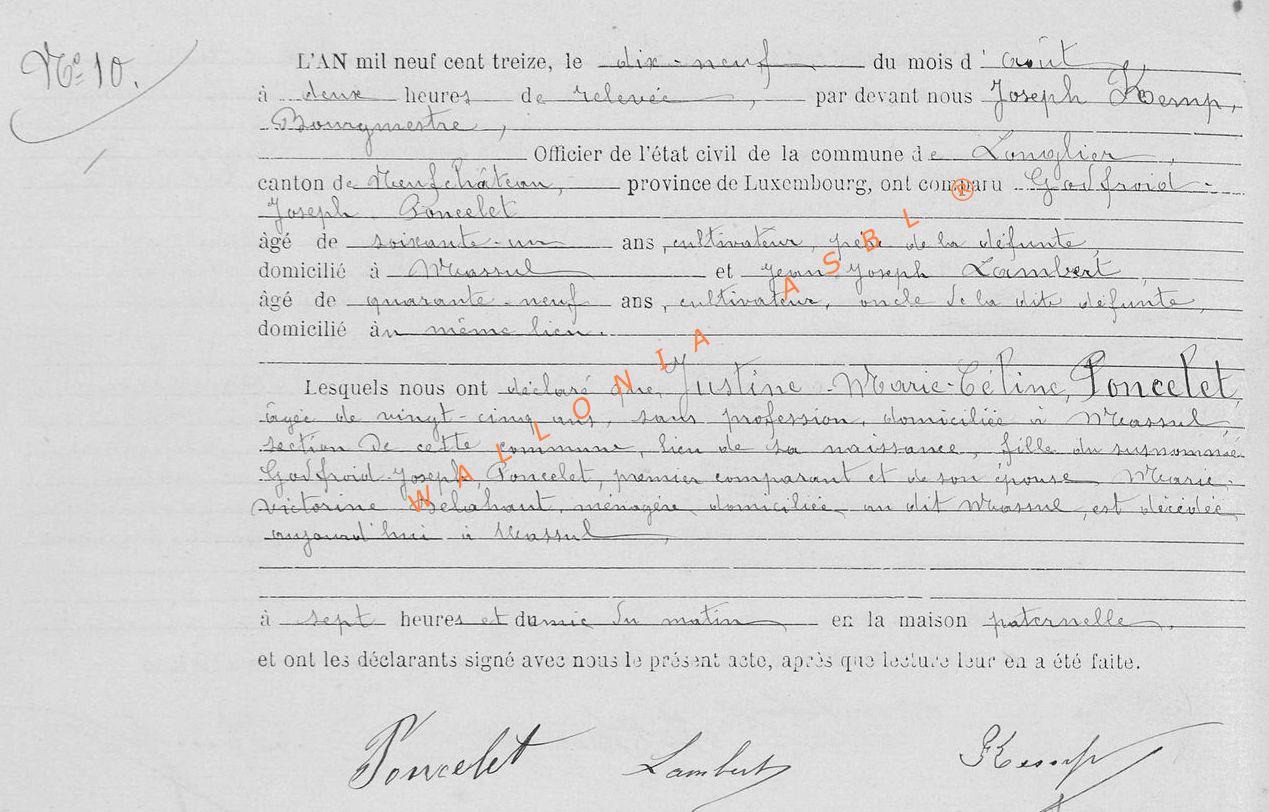 Nº 10.
L'AN mil neuf cent treize, le dix-neuf du mois d'août,
à deux heures de relevée, par devant nous Joseph Kemp,
Bourgmestre,
Officier de l'état civil de la commune de Longlier,
canton de Neufchâteau, province de Luxembourg, ont comparu Godfroid-
Joseph Poncelet
âgé de soixante-un ans, cultivateur, père de la défunte,
domicilié à Massul et Jean-Joseph Lambert,
âgé de quarante-neuf ans, cultivateur, oncle de la dite défunte,
domicilié au même lieu.
Lesquels nous ont déclaré que, Justine-Marie-Céline, Poncelet,
âgée de vingt-cinq ans, sans profession, domiciliée à Massul,
section de cette commune, lieu de sa naissance, fille du susnommé
Godfroid-Joseph, Poncelet, premier comparant et de son épouse Marie-
Victorine ménagère, domiciliée au dit Massul, est décédée
aujourd'hui à Massul,
à sept heures et demie du matin en la maison paternelle.
et ont les déclarants signé avec nous le présent acte, après que lecture leur en a été faite.
Poncelet Lambert Kemp
WALLONIA ASBL ®